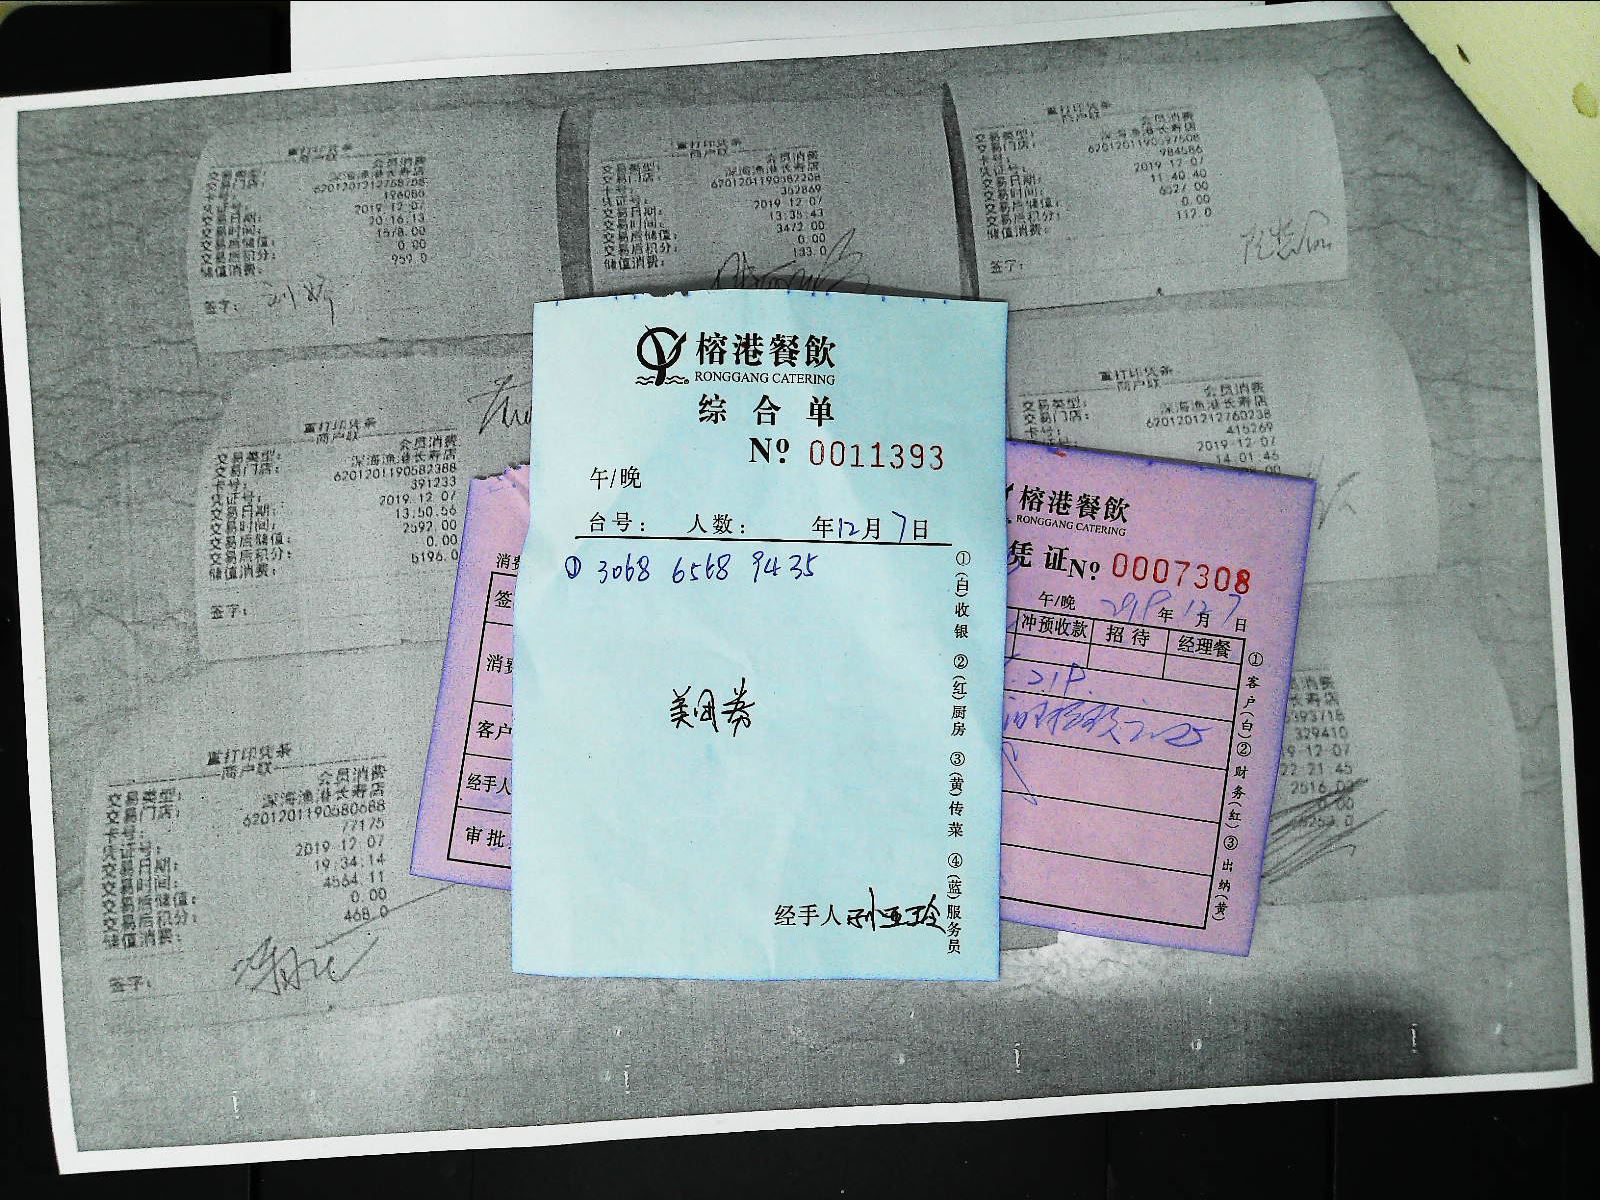 重打印凭条
商户联
交易类型: 会员消费
交易门店: 深海渔港长寿店
卡号: 6201201212758758
凭证号: 196080
交易日期: 2019 12 07
交易时间: 20:16:13
交易后储值: 1578.00
交易后积分: 0.00
储值消费: 959.0
签字:
重打印凭条
商户联
交易类型: 会员消费
交易门店: 深海渔港长寿店
卡号: 6201201190582208
凭证号: 352869
交易日期: 2019 12 07
交易时间: 13:35:43
交易后储值: 3472.00
交易后积分: 0.00
储值消费: 133.0
重打印凭条
商户联
交易类型: 会员消费
交易门店: 深海渔港长寿店
卡号: 6201201190597608
凭证号: 984586
交易日期: 2019 12 07
交易时间: 11 40 40
交易后储值: 6527.00
交易后积分: 0.00
储值消费: 112.0
签字:
重打印凭条
商户联
交易类型: 会员消费
交易门店: 深海渔港长寿店
卡号: 6201201190582388
凭证号: 391233
交易日期: 2019.12.07
交易时间: 13.50.56
交易后储值: 2592.00
交易后积分: 0.00
储值消费: 5196.0
签字:
重打印凭条
商户联
交易类型: 会员消费
交易门店: 深海渔港长寿店
卡号: 6201201212760238
415269
2019 12 07
14 01 46
重打印凭条
商户联
交易类型: 会员消费
交易门店: 深海渔港长寿店
卡号: 6201201190580688
凭证号: 77175
交易日期: 2019 12 07
交易时间: 19:34:14
交易后储值: 4564.11
交易后积分: 0.00
储值消费: 468.0
签字:
消费
393718
329410
9-12-07
22 21 45
2516
榕港餐飲
RONGGANG CATERING
综合单
Nº 0011393
午/晚
台号: 人数: 年12月7日
① 3068 6568 9435
美团券
经手人 孙亚玲
①(白)收银 ②(红)厨房 ③(黄)传菜 ④(蓝)服务员
榕港餐飲
RONGGANG CATERING
凭证Nº 0007308
午/晚 2019年12月7日
冲预收款 招待 经理餐
消费
签
消费
客户
经手人
审批
①客户(白)②财务(红)③出纳(黄)